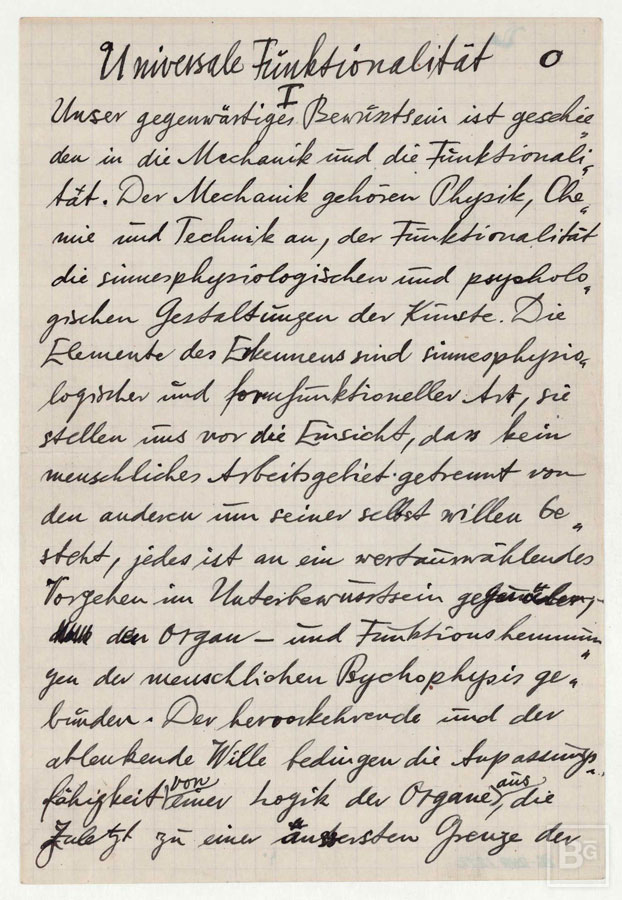 Universale Funktionalität O
I
Unser gegenwärtiges Bewusstsein ist geschie„
den in die Mechanik und die Funktionali„
tät. Der Mechanik gehören Physik, Che„
mie und Technik an, der Funktionalität
die sinnesphysiologischen und psycholo„
gischen Gestaltungen der Künste. Die
Elemente des Erkennens sind sinnesphysio„
logischer und formfunktioneller Art, sie
stellen uns vor die Einsicht, dass kein
menschliches Arbeitsgebiet getrennt von
den anderen um seiner selbst willen be„
steht, jedes ist an ein wertauswählendes
Vorgehen im Unterbewusstsein gegenüber
den Organ- und Funktionshemmun„
gen der menschlichen Psychophysis ge„
bunden. Der hervorkehrende und der
ablenkende Wille bedingen die Anpassungs„
fähigkeit, von einer Logik der Organe aus, die
zuletzt zu einer äussersten Grenze der
BG